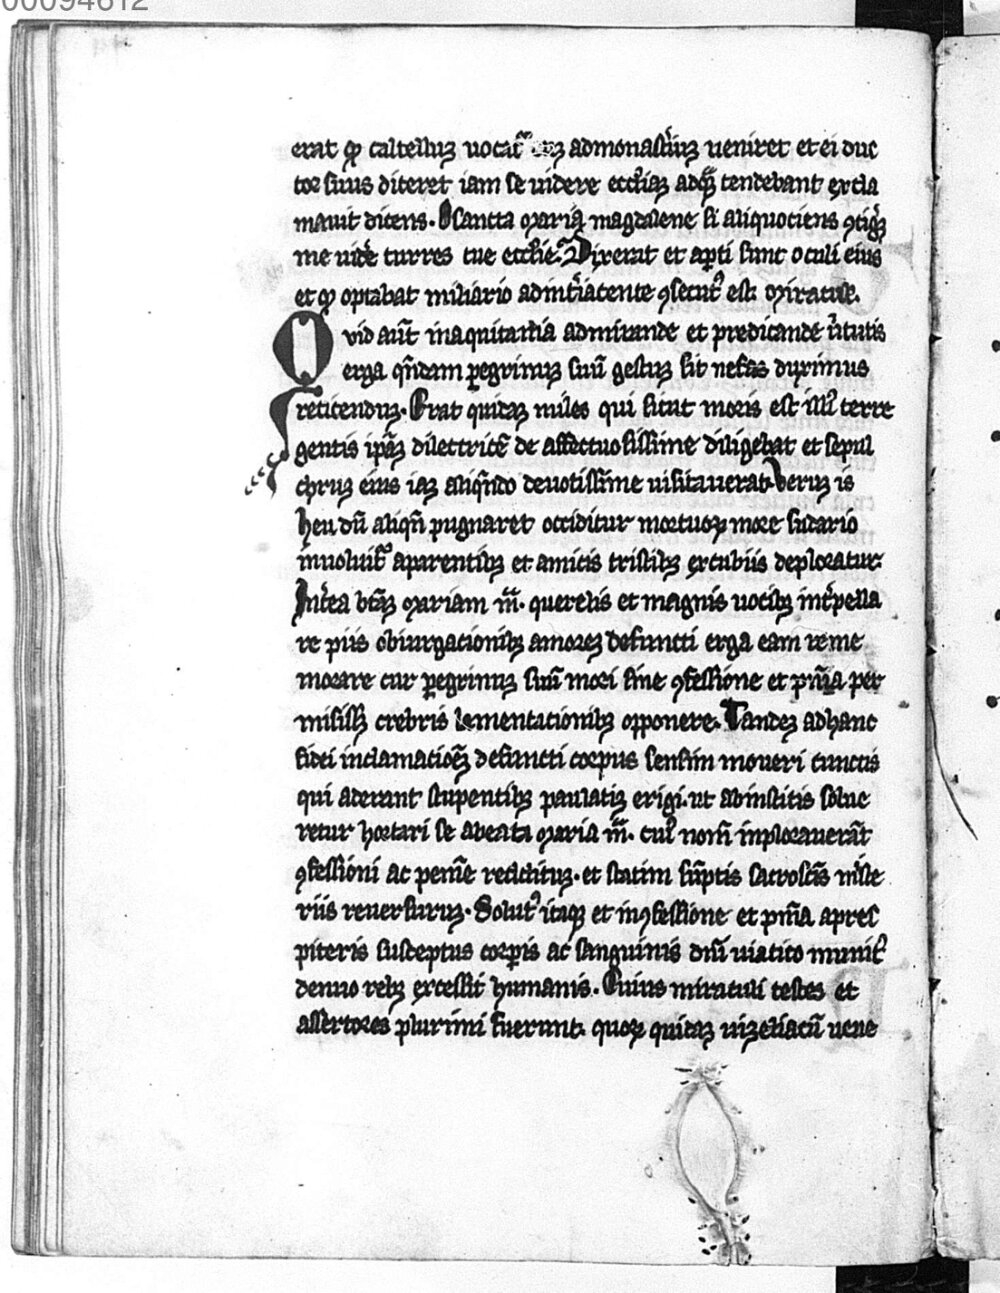 00094612
erat qd castelluz uocat᷑ ad monasteriuz ueniret et ei duc
tor suus diceret iam se uidere eccliaz ad quā tendebant excla
mauit dicens. O sancta maria magdalene si aliquociens ꝯtigit
me uidere turres tue ecclie. Dixerat et apti sunt oculi eius
et qd optabat miliario ad int̄iacente ꝯsecut⁹ est. miraculū.
Quid aut̄ in aquitania admirande et predicande u̓tutis
erga quendam peregrinuz suū gestuz sit nefas duximus
reticenduz. Erat quidaz miles qui sicut moris est illi⁹ terre
gentis ipaz dilectricē dei affectuosissime diligebat et sepul
chruz eius iaz aliqn̄do deuotissime uisitauerat. Veruz is
heu dū aliqn̄ pugnaret occiditur mortuoꝝ more sudario
inuoluit᷑ a parentibꝫ et amicis tristibꝫ excubiis deploratur.
Int̓ea btāz mariam m̄. querelis et magnis uocibꝫ int̓pella
re piis obiurgacionibꝫ amorez defuncti erga eam reme
morare cur peregrinuz suū mori sine ꝯfessione et pn̄ia per
misissꝫ crebris lamentationibꝫ opponere. Tandez ad hanc
fidei inclamacioēz defuncti corpus sensim moueri cunctis
qui aderant stupentibꝫ paulatiz erigi. ut ab institis solue
retur hortari se a beata maria m̄. cui⁹ nom̄ inplorauerāt
ꝯfessioni ac penītē redditus. et statim sūptis sacroscīs miste
riis reuersuruz. Solut⁹ itaqꝫ et in ꝯfessione et pn̄ia a pres
piteris susceptus corpis ac sanguinis dn̄i uiatico munit⁹
denuo rebꝫ excessit humanis. Cuius miraculi testes et
assertores plurimi fuerunt. quoꝝ quidaz uizeliacū uene